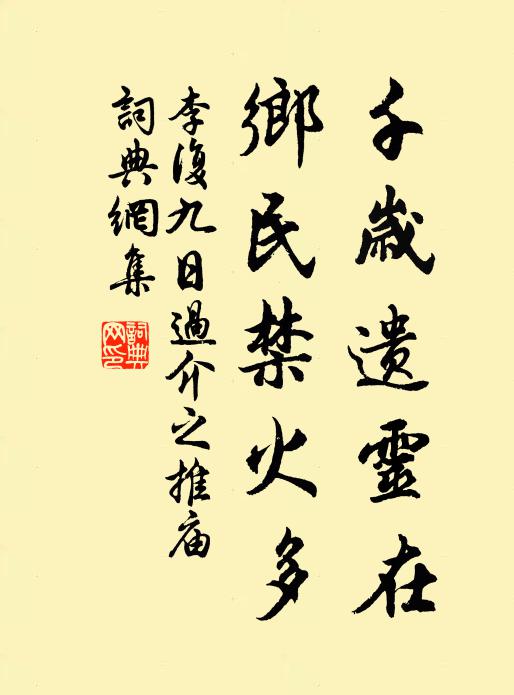 千歲遺靈在
鄉民禁火多
李復九日過介之推庙
詞典網集
詞典網印